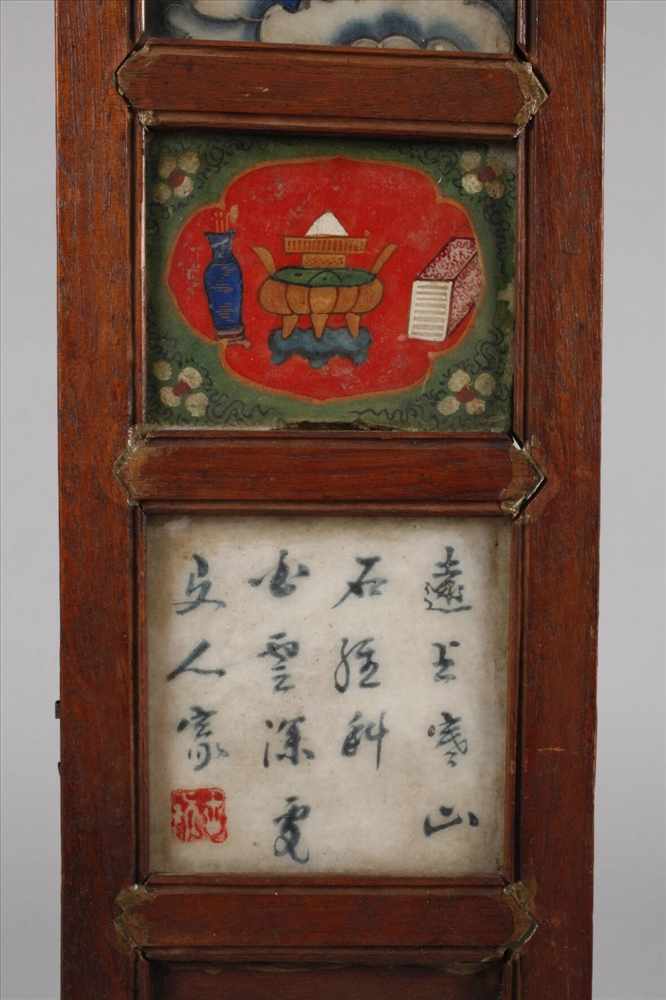 遠上寒山
石徑斜
白雲深處
有人家